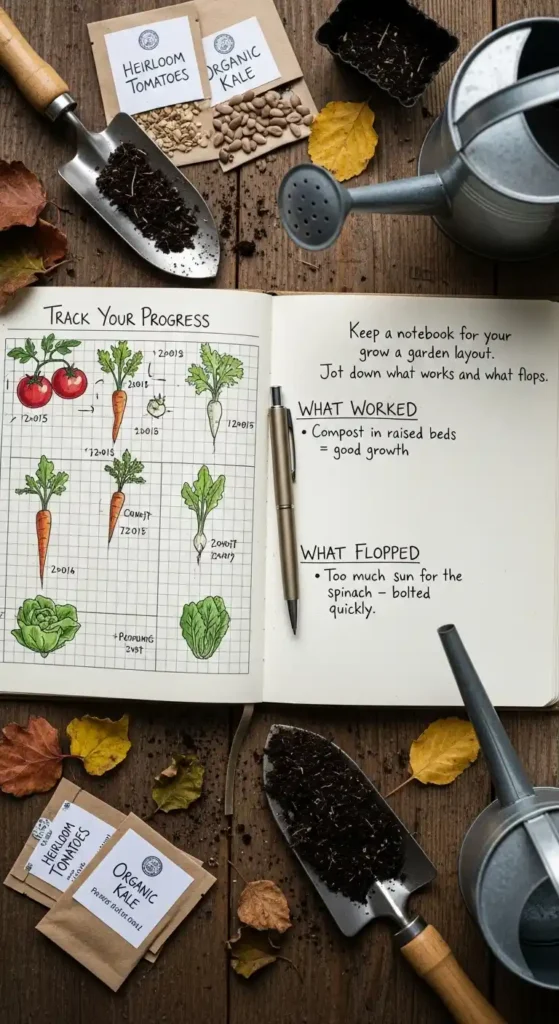 HEIRLOOM
TOMATOES
ORGANIC
KALE
TRACK YOUR PROGRESS
Keep a notebook for your
grow a garden layout.
Jot down what works and what flops.
WHAT WORKED
• Compost in raised beds
= good growth
WHAT FLOPPED
• Too much sun for the
spinach – bolted
quickly.
HEIRLOOM
TOMATOES
ORGANIC
KALE